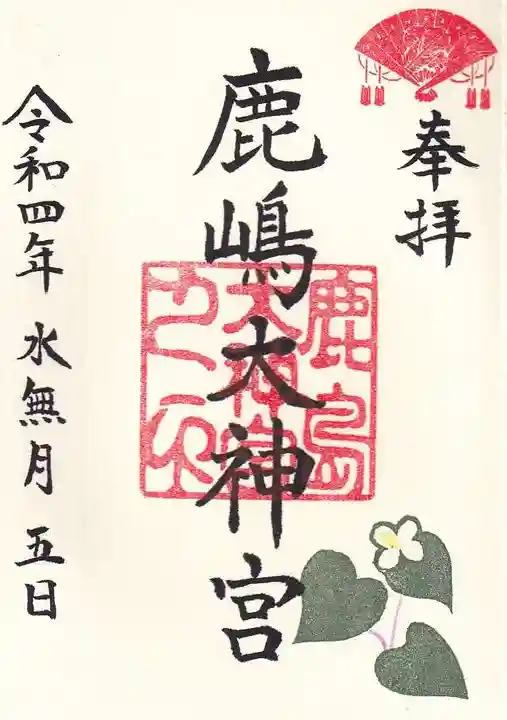 奉拝
鹿嶋大神宮
鹿島
大神宮
之印
令和四年 水無月 五日